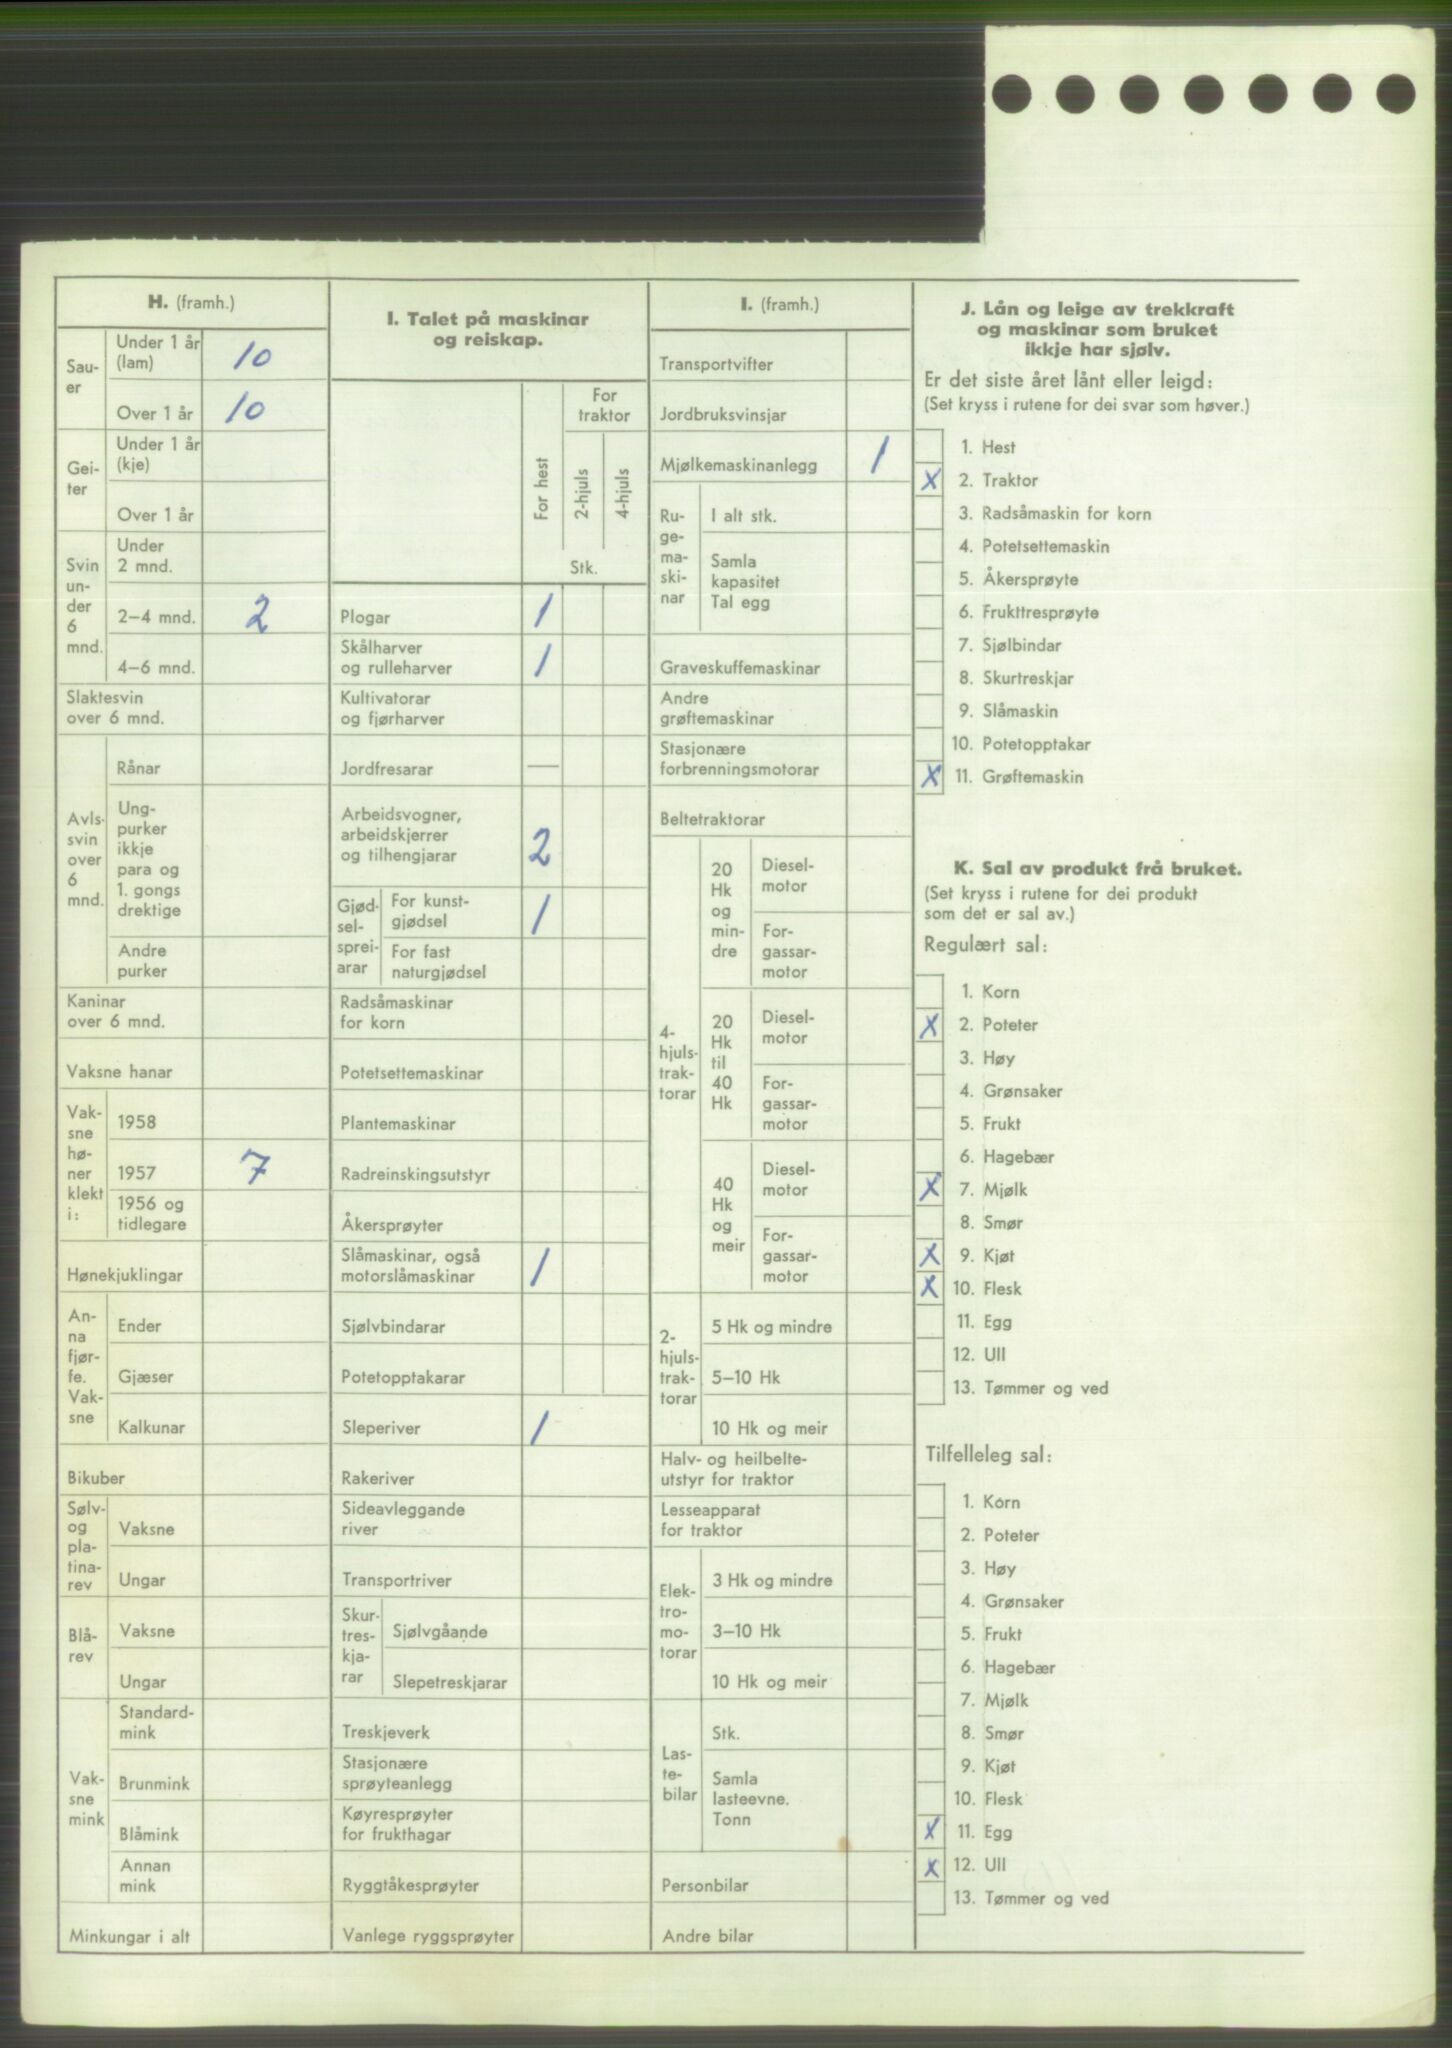 H. (framh.)
Sau-
er
Under 1 år
(lam)
10
Over 1 år
10
Gei-
ter
Under 1 år
(kje)
Over 1 år
Svin
un-
der
6
mnd.
Under
2 mnd.
2–4 mnd.
2
4–6 mnd.
Slaktesvin
over 6 mnd.
Avls-
svin
over
6
mnd.
Rånar
Ung-
purker
ikkje
para og
1. gongs
drektige
Andre
purker
Kaninar
over 6 mnd.
Vaksne hanar
Vak-
sne
hø-
ner
klekt
i:
1958
1957
7
1956 og
tidlegare
Hønekjuklingar
An-
na
fjør-
fe.
Vak-
sne
Ender
Gjæser
Kalkunar
Bikuber
Sølv-
og
pla-
tina-
rev
Vaksne
Ungar
Blå-
rev
Vaksne
Ungar
Vak-
sne
mink
Standard-
mink
Brunmink
Blåmink
Annan
mink
Minkungar i alt
I. Talet på maskinar
og reiskap.
For hest
For
traktor
2-hjuls
4-hjuls
Stk.
Plogar
1
Skålharver
og rulleharver
1
Kultivatorar
og fjørharver
Jordfresarar
—
Arbeidsvogner,
arbeidskjerrer
og tilhengjarar
2
Gjød-
sel-
sprei-
arar
For kunst-
gjødsel
1
For fast
naturgjødsel
Radsåmaskinar
for korn
Potetsettemaskinar
Plantemaskinar
Radreinskingsutstyr
Åkersprøyter
Slåmaskinar, også
motorslåmaskinar
1
Sjølvbindarar
Potetopptakarar
Sleperiver
1
Rakeriver
Sideavleggande
river
Transportriver
Skur-
tres-
kja-
rar
Sjølvgåande
Slepetreskjarar
Treskjeverk
Stasjonære
sprøyteanlegg
Køyresprøyter
for frukthagar
Ryggtåkesprøyter
Vanlege ryggsprøyter
I. (framh.)
Transportvifter
Jordbruksvinsjar
Mjølkemaskinanlegg
1
Ru-
ge-
ma-
ski-
nar
I alt stk.
Samla
kapasitet
Tal egg
Graveskuffemaskinar
Andre
grøftemaskinar
Stasjonære
forbrenningsmotorar
Beltetraktorar
4-
hjuls-
trak-
torar
20
Hk
og
min-
dre
Diesel-
motor
For-
gassar-
motor
20
Hk
til
40
Hk
Diesel-
motor
For-
gassar-
motor
40
Hk
og
meir
Diesel-
motor
For-
gassar-
motor
2-
hjuls-
trak-
torar
5 Hk og mindre
5–10 Hk
10 Hk og meir
Halv- og heilbelte-
utstyr for traktor
Lesseapparat
for traktor
Elek-
tro-
mo-
torar
3 Hk og mindre
3–10 Hk
10 Hk og meir
Las-
te-
bilar
Stk.
Samla
lasteevne.
Tonn
Personbilar
Andre bilar
J. Lån og leige av trekkraft
og maskinar som bruket
ikkje har sjølv.
Er det siste året lånt eller leigd:
(Set kryss i rutene for dei svar som høver.)
1. Hest
X 2. Traktor
3. Radsåmaskin for korn
4. Potetsettemaskin
5. Åkersprøyte
6. Frukttresprøyte
7. Sjølbindar
8. Skurtreskjar
9. Slåmaskin
10. Potetopptakar
X 11. Grøftemaskin
K. Sal av produkt frå bruket.
(Set kryss i rutene for dei produkt
som det er sal av.)
Regulært sal:
1. Korn
X 2. Poteter
3. Høy
4. Grønsaker
5. Frukt
6. Hagebær
X 7. Mjølk
8. Smør
X 9. Kjøt
X 10. Flesk
11. Egg
12. Ull
13. Tømmer og ved
Tilfelleleg sal:
1. Korn
2. Poteter
3. Høy
4. Grønsaker
5. Frukt
6. Hagebær
7. Mjølk
8. Smør
9. Kjøt
10. Flesk
X 11. Egg
X 12. Ull
13. Tømmer og ved